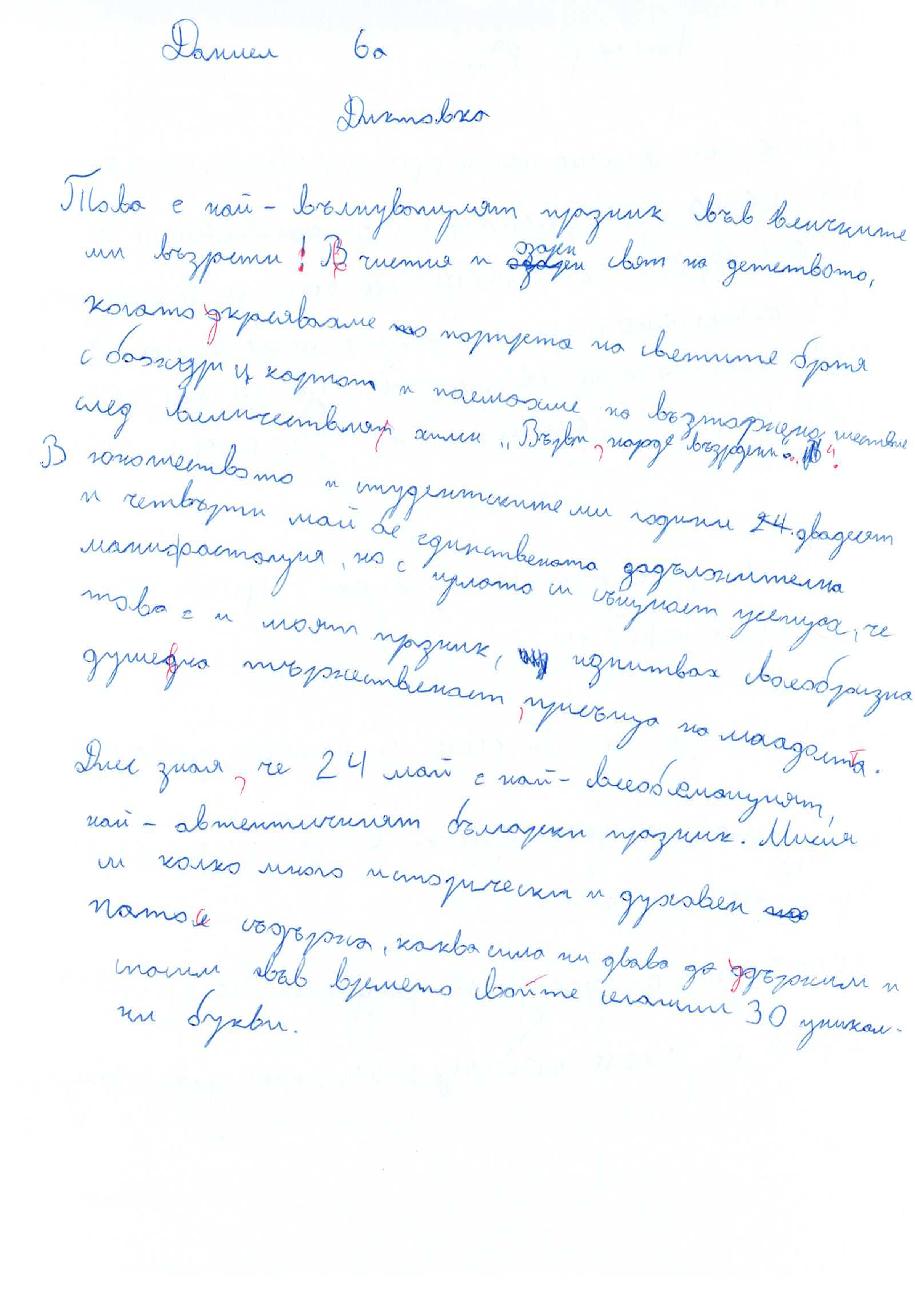 Даниел 6а
Диктовка
Това е най - вълнуващият празник във всичките
ми възрасти! В чистия и озарен свят на детството,
когато украсявахме портрета на светите братя
с божури и картон и поемахме на възторжено шествие
след величествения химн „Върви, народе възродени“!
В юношеството и студентските ми години двадесет
и четвърти май бе единствената задължителна
манифестация, но с цялото си същество усещах, че
това е и моят празник, изпитвах своеобразна
душевна тържественост, присъща на младостта.
Днес зная, че 24 май е най - всеобемащият,
най - автентичният български празник. Мисля
си колко много исторически и духовен
патос съдържа, каква сила ни дава да държим и
носим във времето своите селашни 30 уникал-
ни букви.